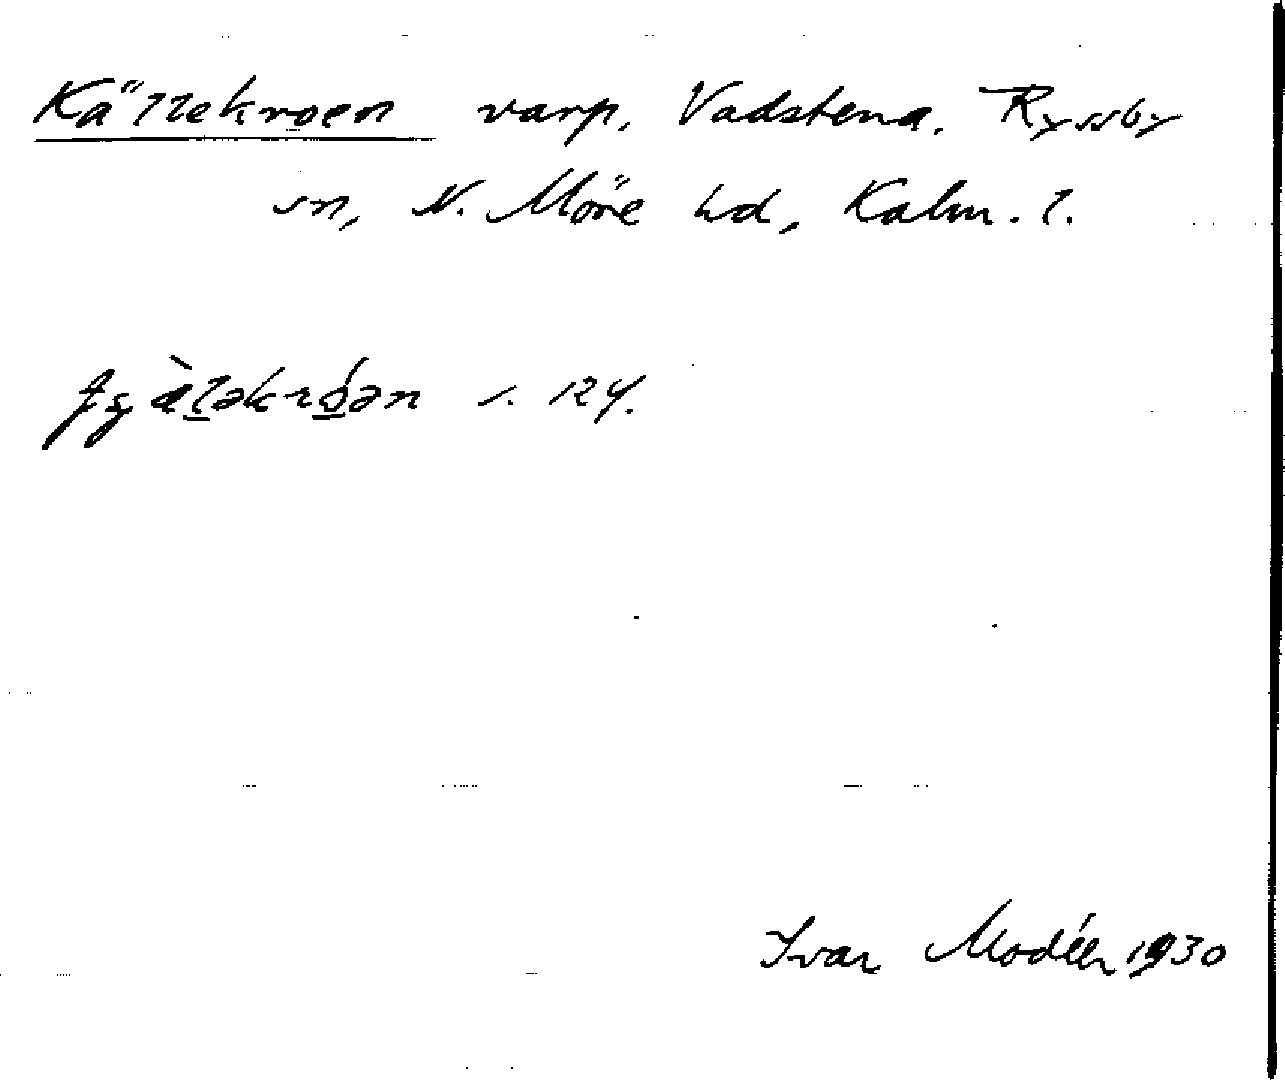 Källekroen varp, Vadstena, Ryssby
sn, N. Möre hd, Kalm. l.
s. 124.
Ivar Modéer 1930